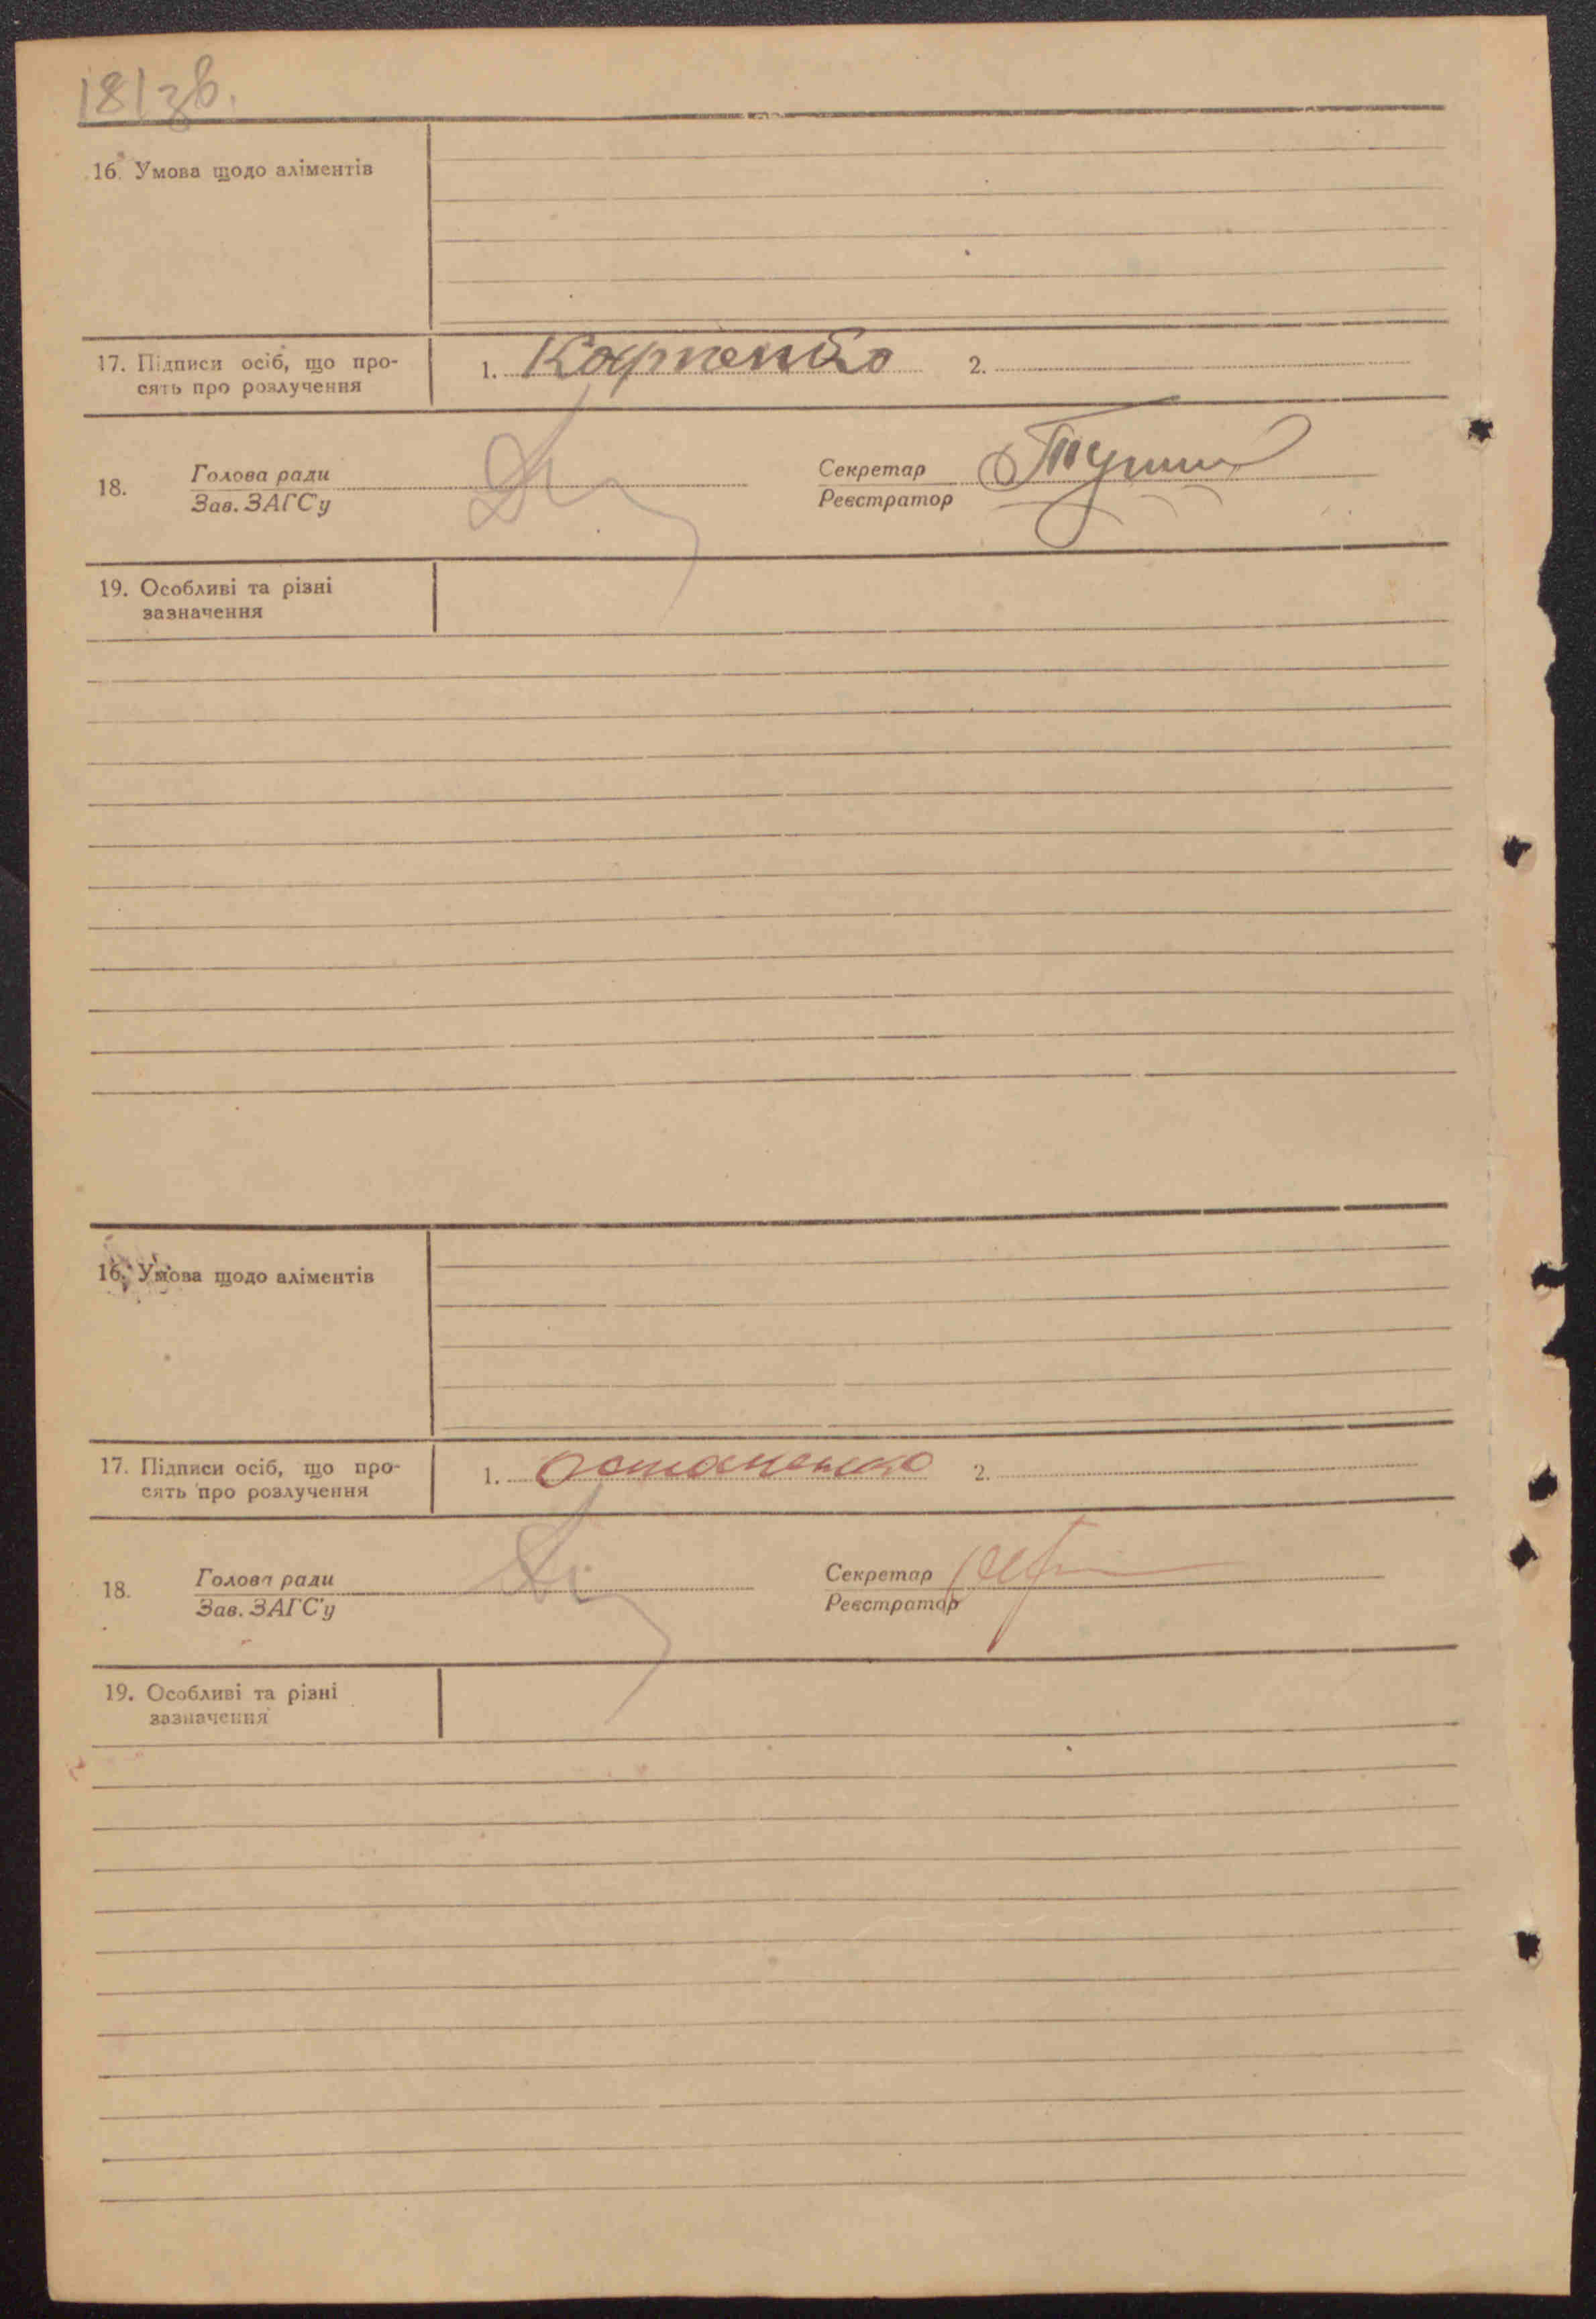 181зв.
16. Умова щодо аліментів
17. Підписи осіб, що про-
сять про розлучення
1. Карпенко 2.
18. Голова ради
Зав. ЗАГС'у
Секретар
Реєстратор
19. Особливі та різні
зазначення
16. Умова щодо аліментів
17. Підписи осіб, що про-
сять про розлучення
1. Остапенко 2.
18. Голова ради
Зав. ЗАГС'у
Секретар
Реєстратор
19. Особливі та різні
зазначення